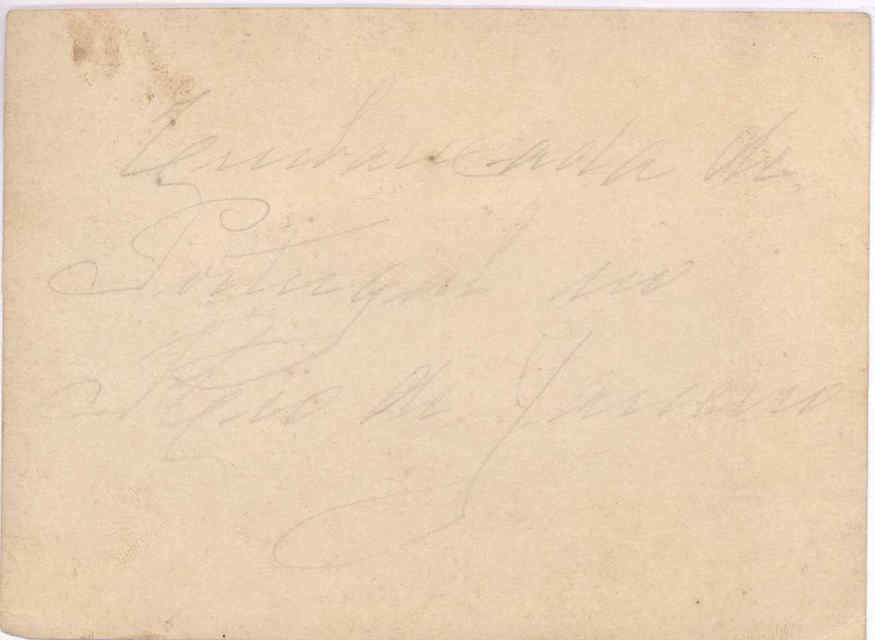 Embaixada de
Portugal no
Rio de Janeiro